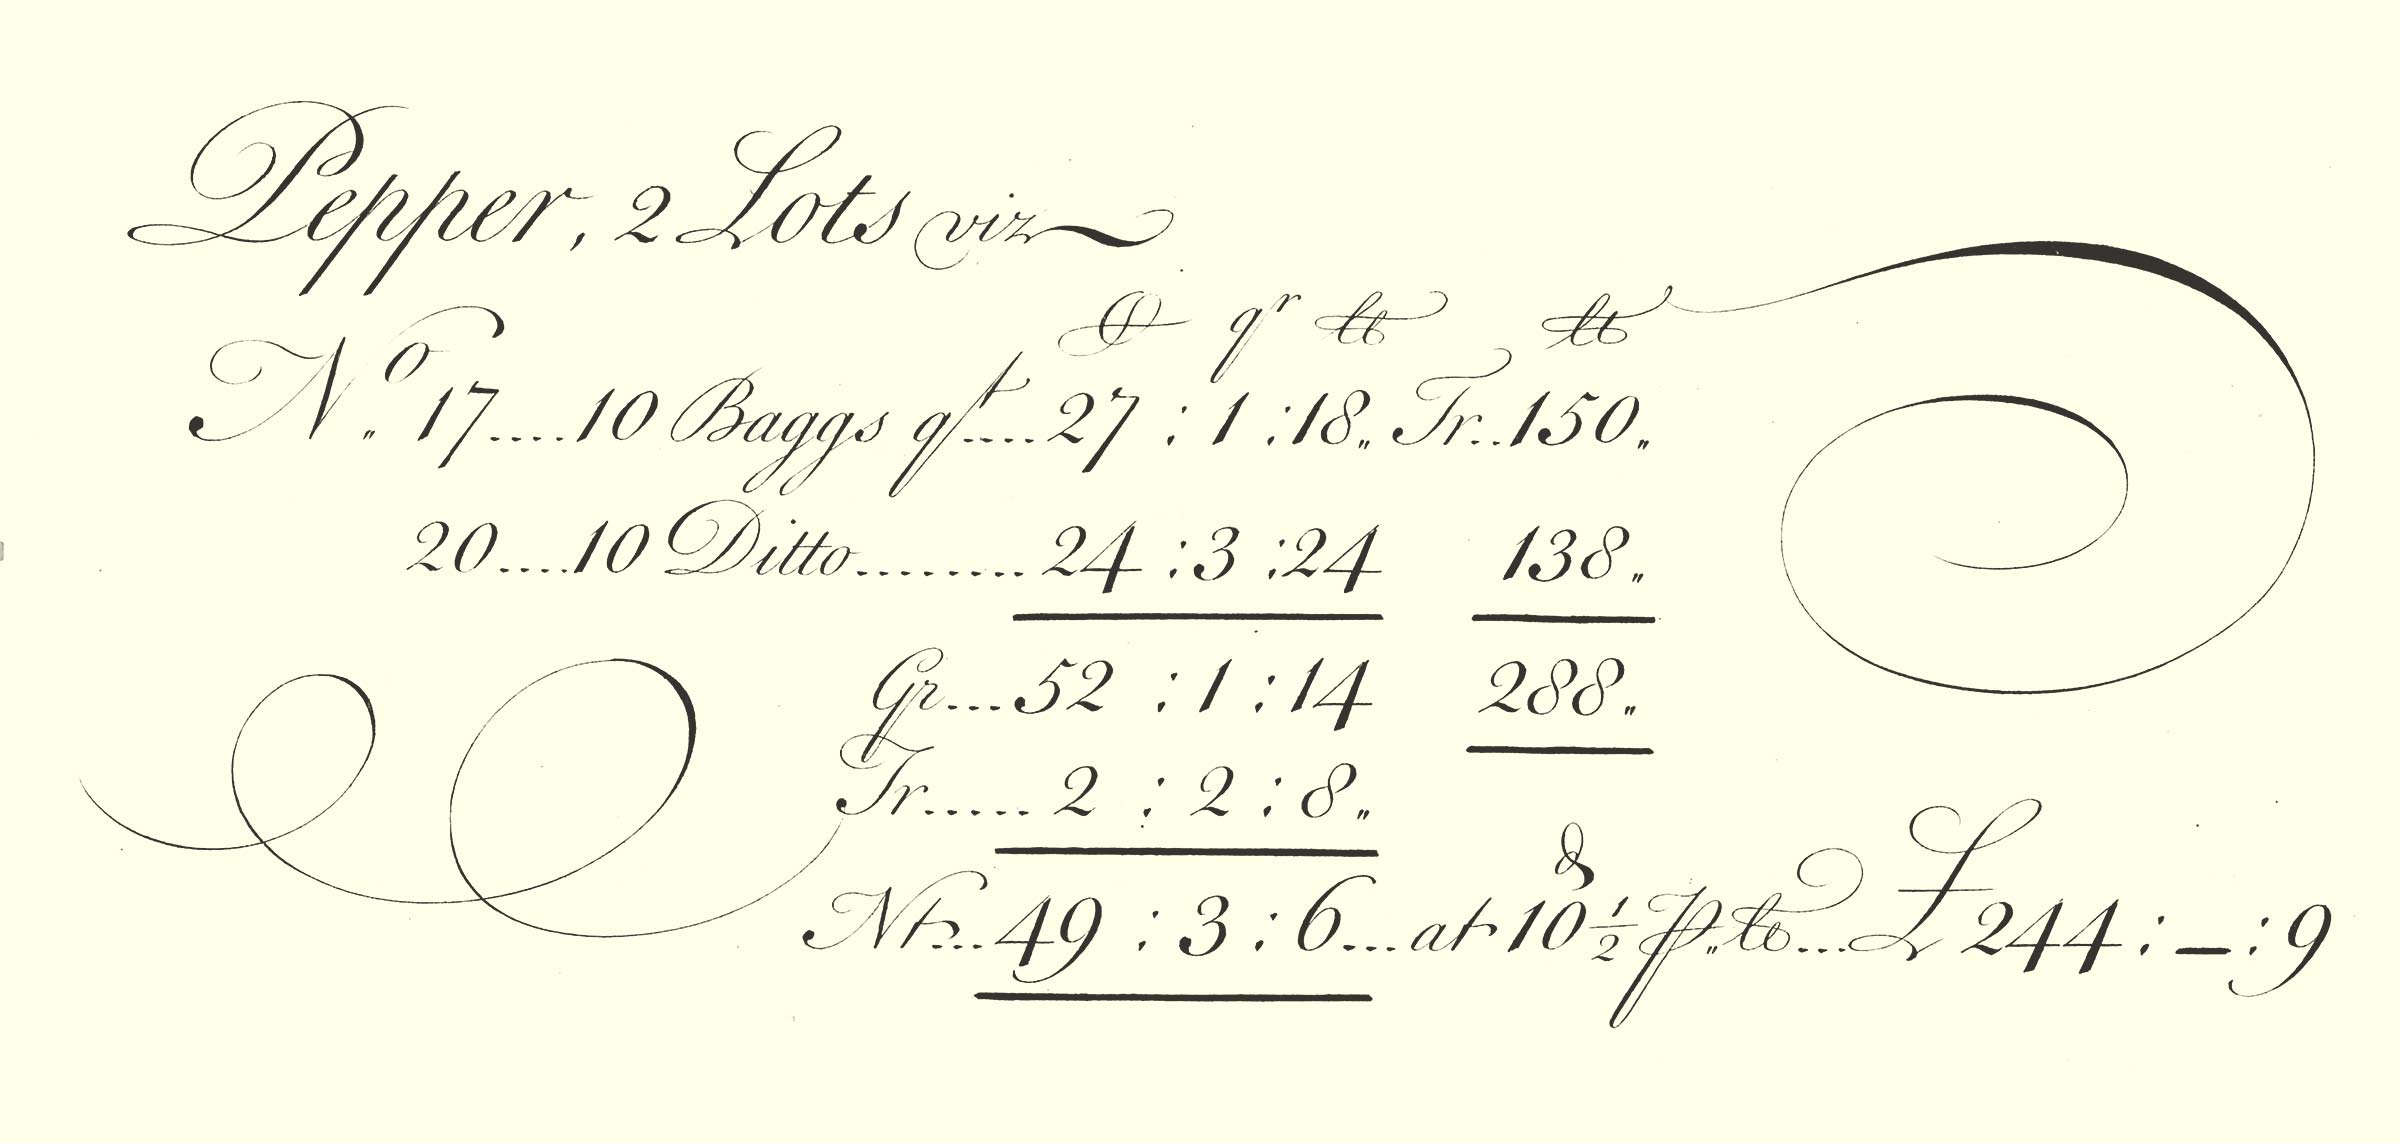 Pepper, 2 Lots viz
C qr lb lb
No. 17....10 Baggs qt....27 : 1 : 18„ Tr..150„
20....10 Ditto.........24 : 3 : 24 138„
Gr...52 : 1 : 14 288„
Tr.....2 : 2 : 8„
d
Nt...49 : 3 : 6...at 10 1/2 p„ lb...£ 244 : — : 9